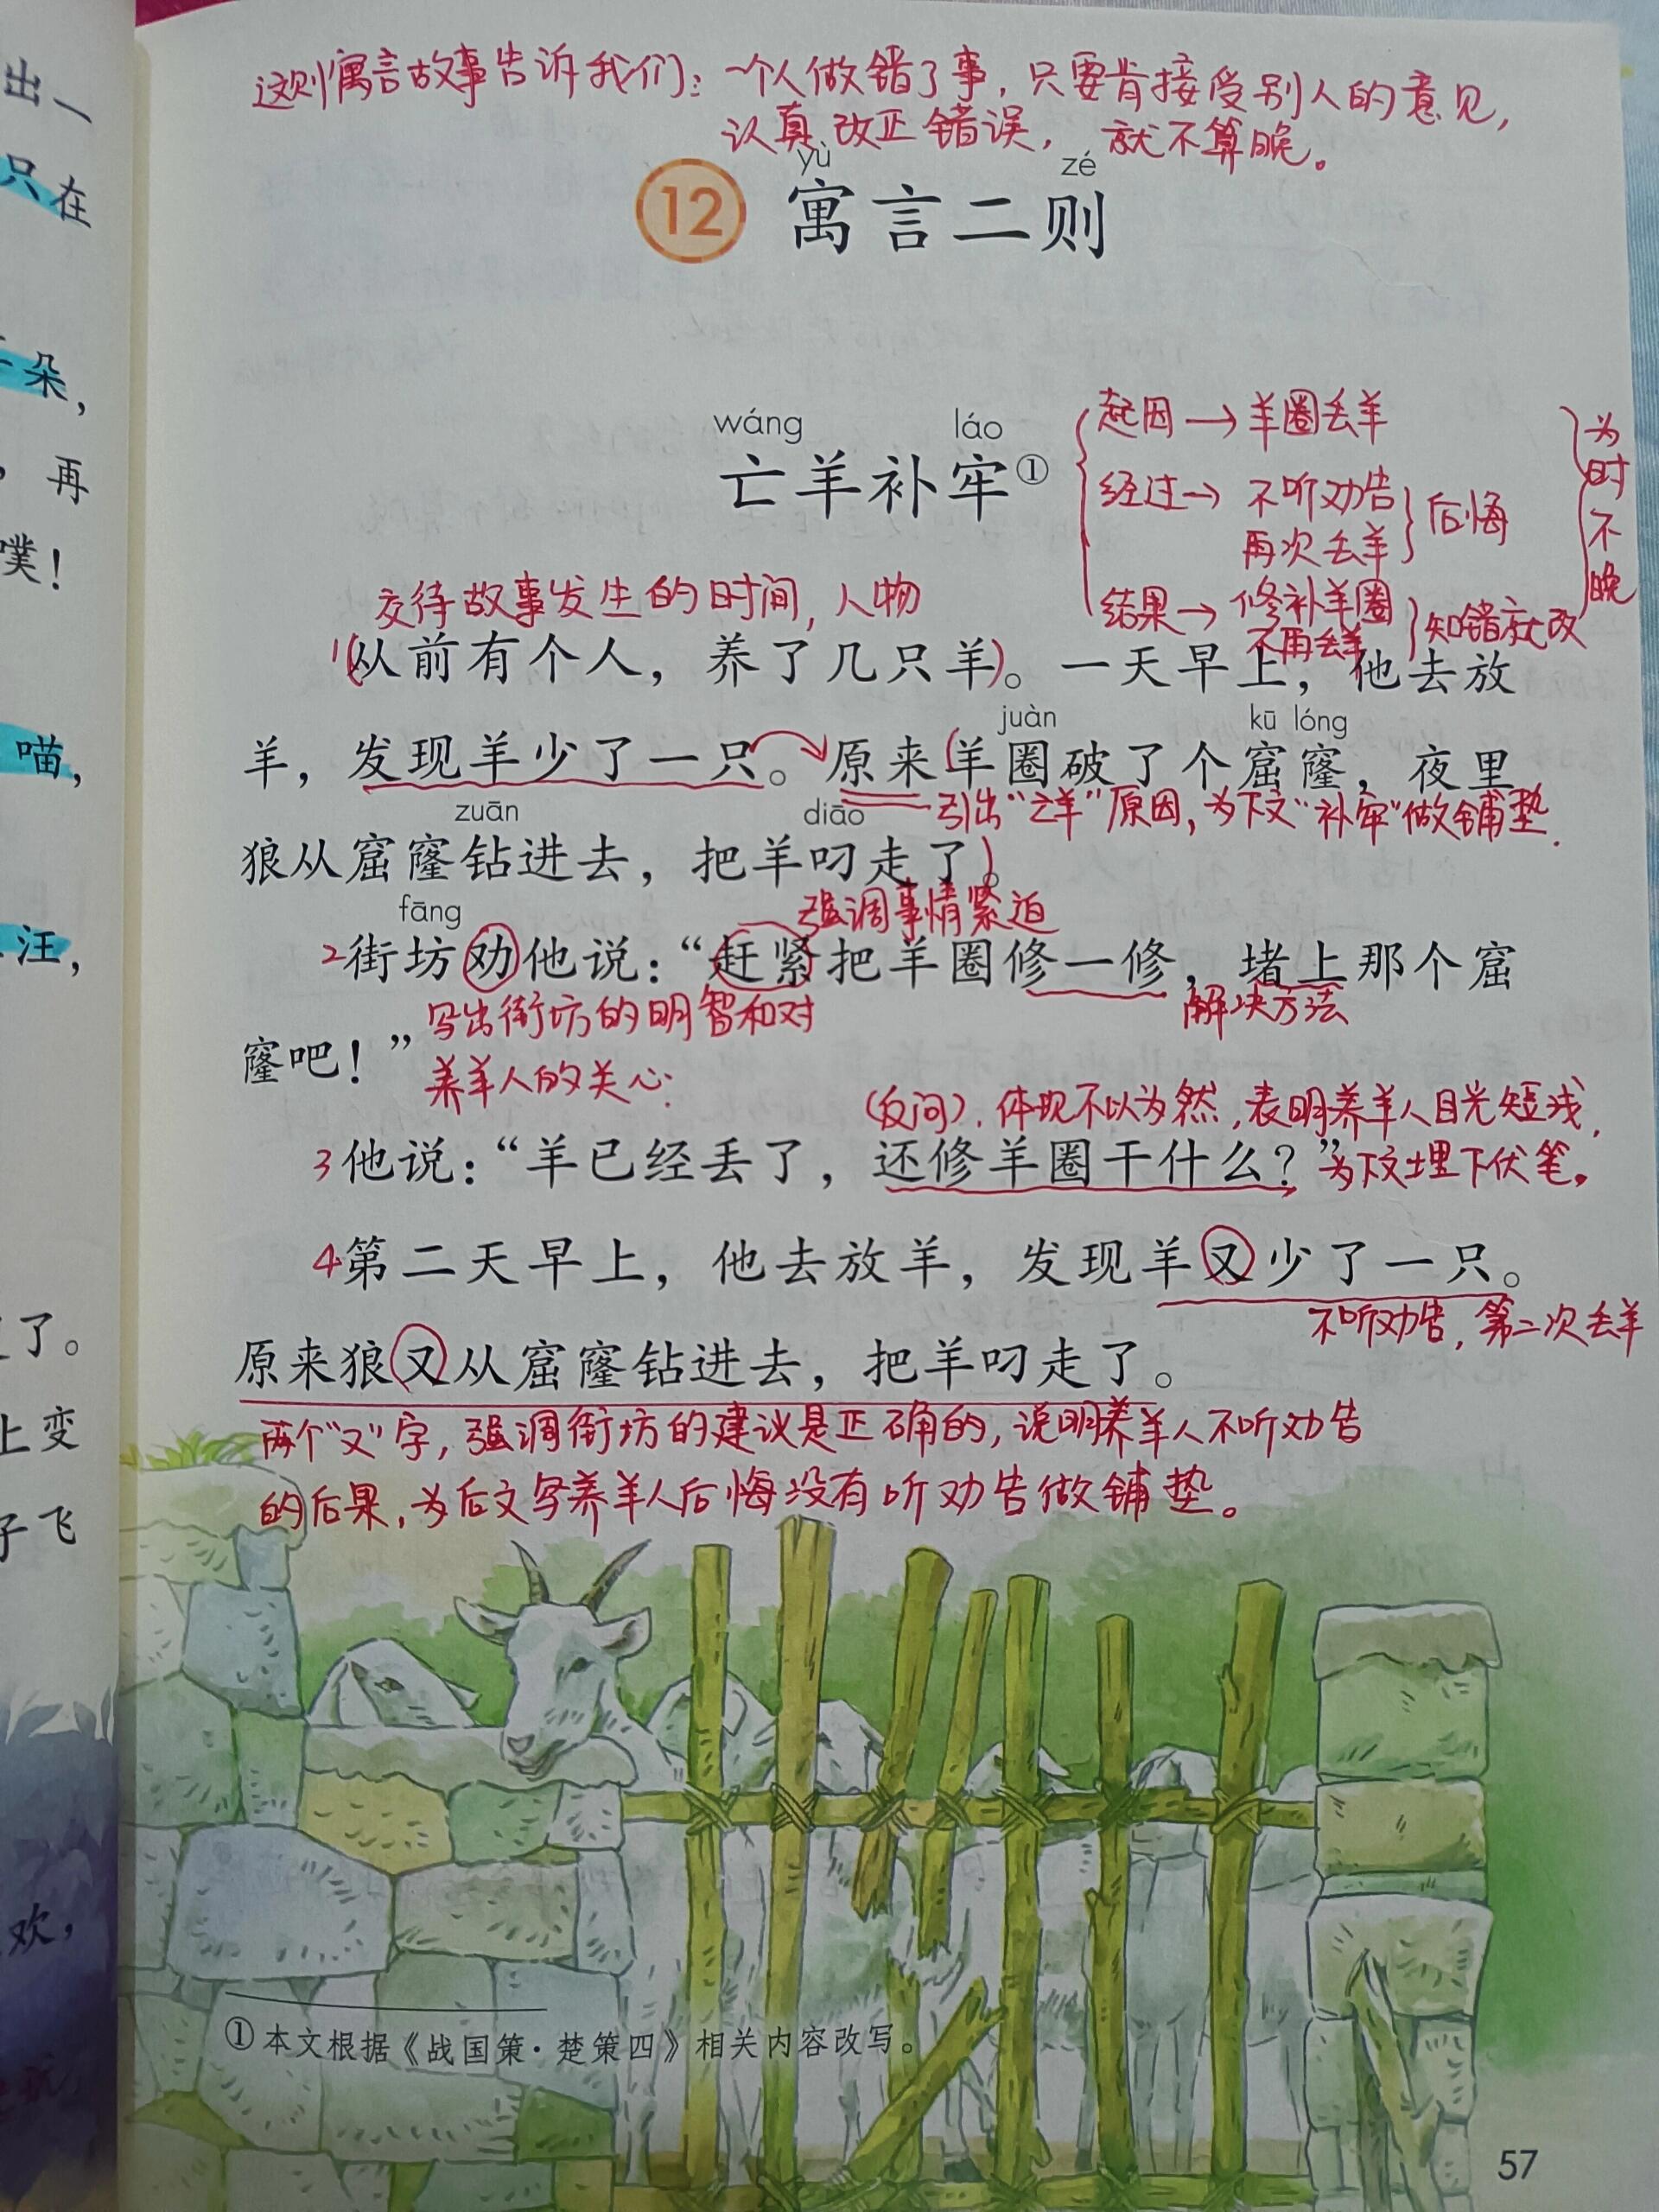 出一
只在
朵，
，再
噗！
喵，
汪，
了。
上变
子飞
欢，
这则寓言故事告诉我们：一个人做错了事，只要肯接受别人的意见，
认真改正错误，就不算晚。
yù zé
12 寓言二则
wáng láo
亡羊补牢①
起因→羊圈丢羊
经过→不听劝告
再次丢羊
后悔
结果→修补羊圈
不再丢羊
知错就改
为时不晚
交待故事发生的时间，人物
1(从前有个人，养了几只羊)。一天早上，他去放
juàn kū lóng
羊，发现羊少了一只。原来(羊圈破了个窟窿，夜里
引出“亡羊”原因，为下文“补牢”做铺垫.
zuān diāo
狼从窟窿钻进去，把羊叼走了)。
强调事情紧迫
fāng
2街坊劝他说：“赶紧把羊圈修一修，堵上那个窟
写出街坊的明智和对
解决方法
窿吧！”
养羊人的关心.
(反问).体现不以为然,表明养羊人目光短浅,
3他说：“羊已经丢了，还修羊圈干什么？”为下文埋下伏笔。
4第二天早上，他去放羊，发现羊又少了一只。
不听劝告，第二次丢羊
原来狼又从窟窿钻进去，把羊叼走了。
两个“又”字，强调街坊的建议是正确的，说明养羊人不听劝告
的后果，为后文写养羊人后悔没有听劝告做铺垫。
①本文根据《战国策·楚策四》相关内容改写。
57